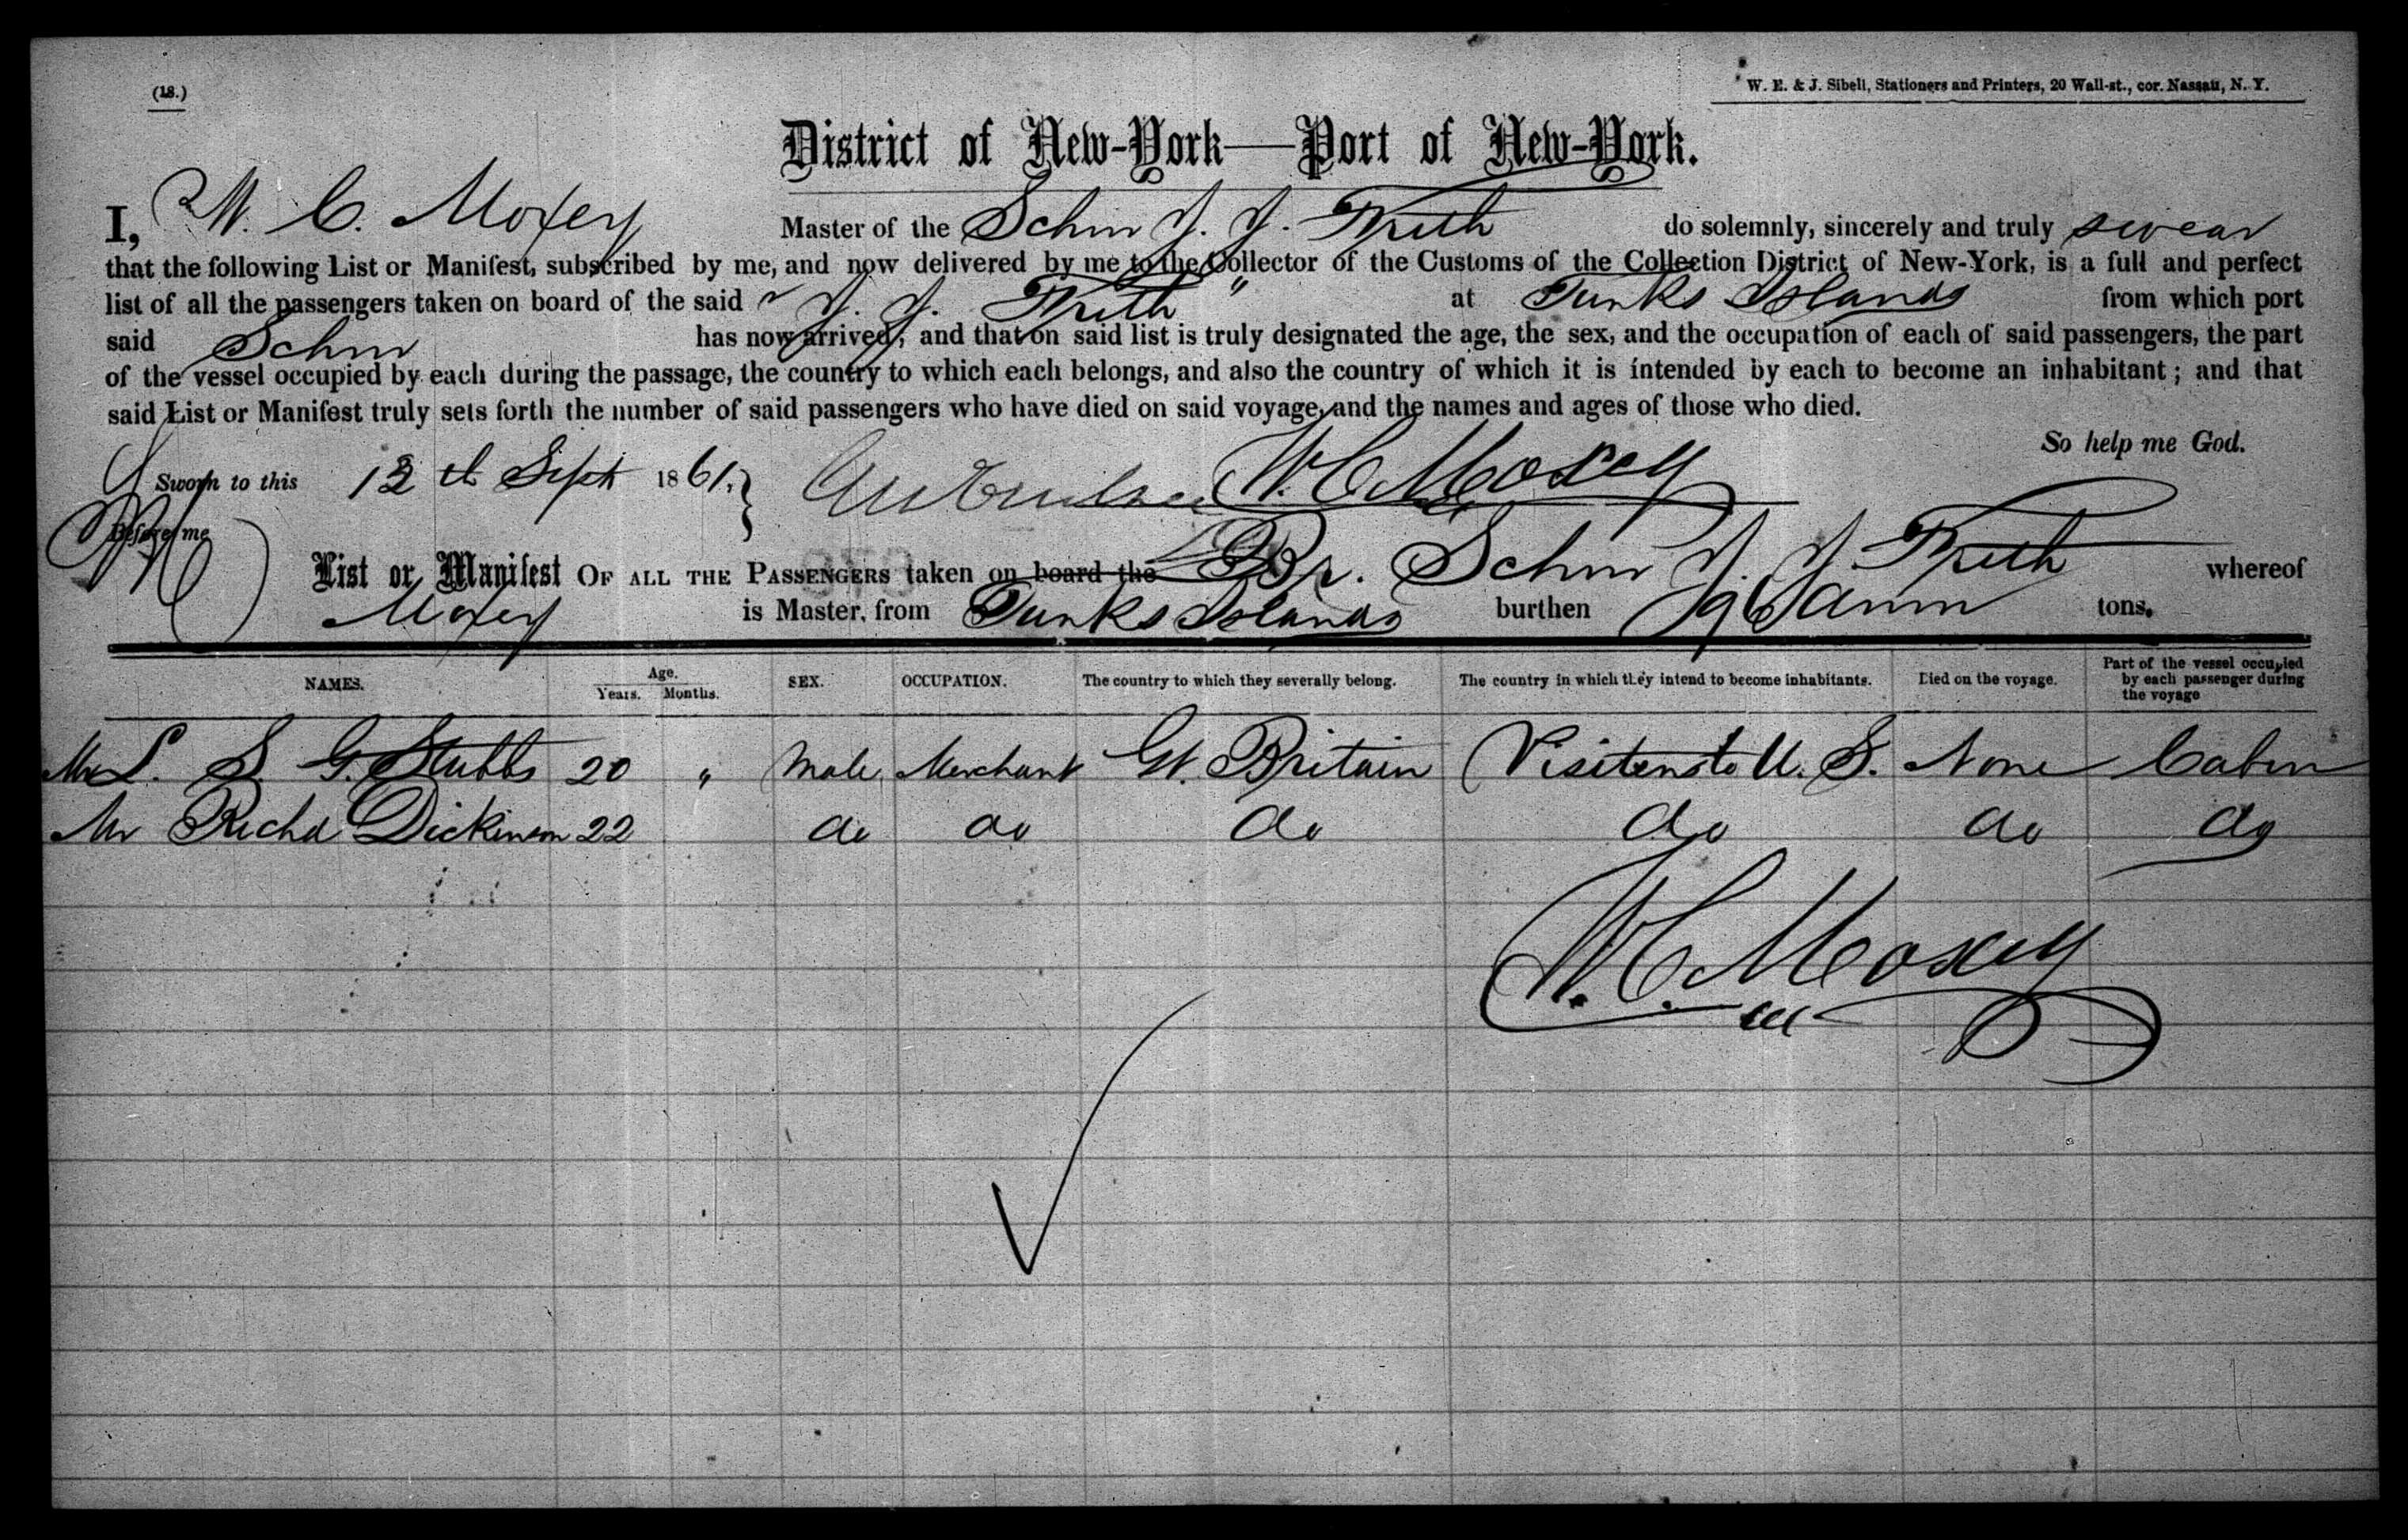 (18.)
W. E. & J. Sibell, Stationers and Printers, 20 Wall-st., cor. Nassau, N. Y.
District of New-York—Port of New-York.
I, W. C. Moxey Master of the Schnr J. J. Frith do solemnly, sincerely and truly swear
that the following List or Manifest, subscribed by me, and now delivered by me to the Collector of the Customs of the Collection District of New-York, is a full and perfect
list of all the passengers taken on board of the said " J. J. Frith " at Turks Islands from which port
said Schnr has now arrived; and that on said list is truly designated the age, the sex, and the occupation of each of said passengers, the part
of the vessel occupied by each during the passage, the country to which each belongs, and also the country of which it is intended by each to become an inhabitant; and that
said List or Manifest truly sets forth the number of said passengers who have died on said voyage, and the names and ages of those who died.
So help me God.
Sworn to this 12th Sept 1861. W. C. Moxey
Before me
List or Manifest OF ALL THE PASSENGERS taken on board the Br. Schnr J. J. Frith whereof
Moxey is Master, from Turks Islands burthen 96 tons.
NAMES. Age. Years. Months. SEX. OCCUPATION. The country to which they severally belong. The country in which they intend to become inhabitants. Died on the voyage. Part of the vessel occupied by each passenger during the voyage
Mr L. S. G. Stubbs 20 " Male Merchant Gt. Britain Visitors to U. S. None Cabin
Mr Richd Dickinson 22 do do do do do do
W. C. Moxey